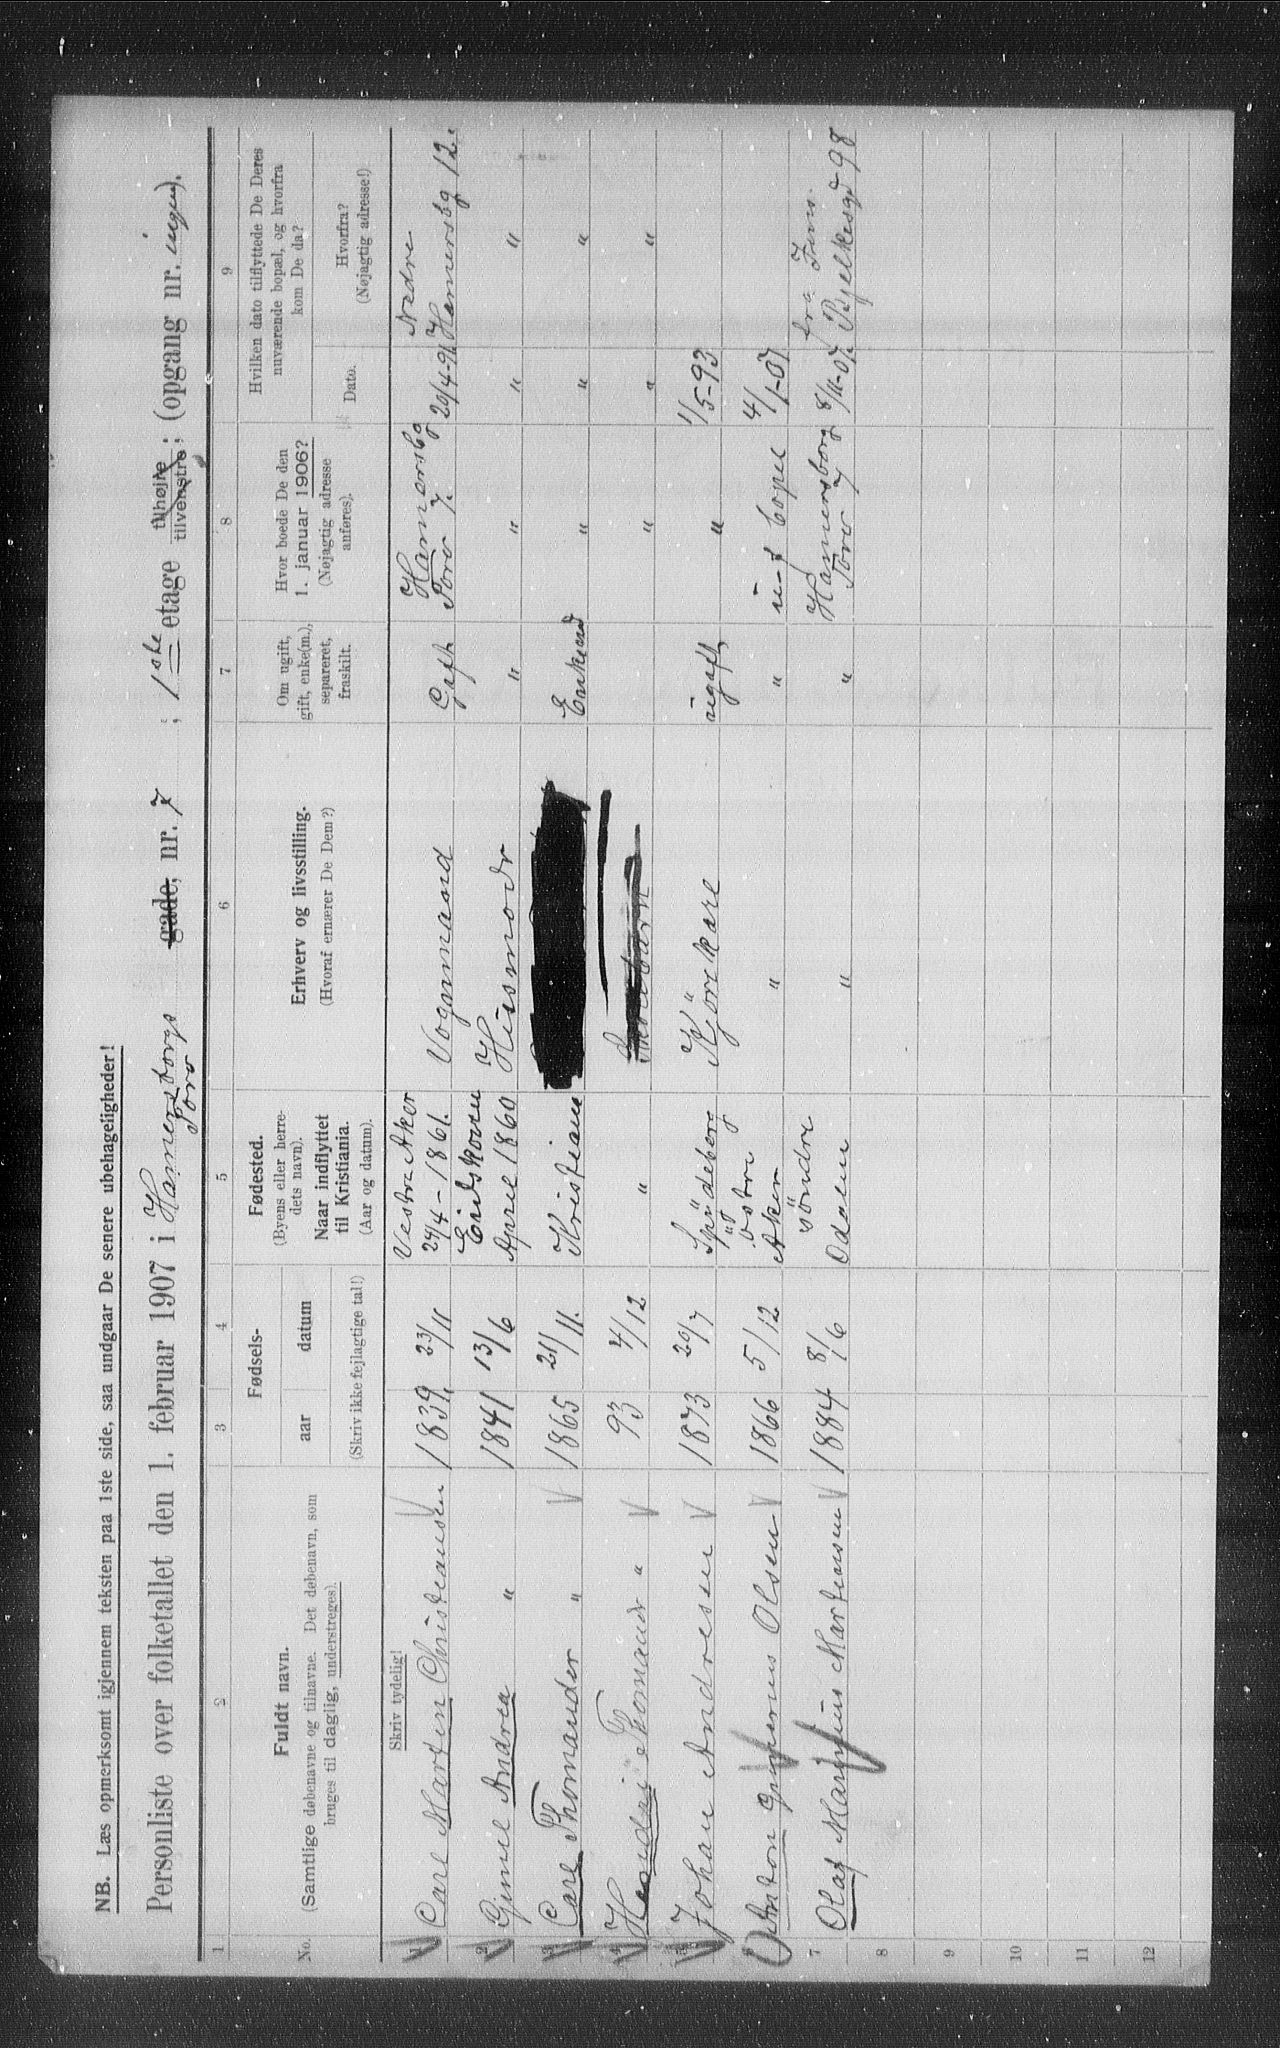 NB. Læs opmerksomt igjennem teksten paa 1ste side, saa undgaar De senere ubehageligheder!
Personliste over folketallet den 1. februar 1907 i Hamersborgs Torv gade, nr. 7 ; 1ste etage tilhøjre tilvenstre ; (opgang nr. ingen).
1 2 3 4 5 6 7 8 9
No.
Fuldt navn.
(Samtlige døbenavne og tilnavne. Det døbenavn, som
bruges til daglig, understreges).
Fødsels-
aar datum
(Skriv ikke fejlagtige tal!)
Fødested.
(Byens eller herre-
dets navn).
Naar indflyttet
til Kristiania.
(Aar og datum).
Erhverv og livsstilling.
(Hvoraf ernærer De Dem?)
Om ugift,
gift, enke(m.),
separeret,
fraskilt.
Hvor boede De den
1. januar 1906?
(Nøjagtig adresse
anføres).
Hvilken dato tilflyttede De Deres
nuværende bopæl, og hvorfra
kom De da?
Dato.
Hvorfra?
(Nøjagtig adresse!)
Skriv tydelig!
1 Carl Martin Christiansen 1839 23/11 Vestre Aker 24/4-1861. Vognmand Gift Hamersbg Torv 7. 20/4-91 Nedre Hamersbg 12.
2 Gimel Andrea " 1841 13/6 Eidskoven April 1860 Husmodr " " " "
3 Carl Thomander " 1865 21/11. Kristiania Enkemd " " "
4 Thomandr " 93 4/12 " " " "
5 Johan Andresen 1873 20/7 Spydeberg Kjörekarl ugift " 1/5-93
6 Anton Olsen 1866 5/12 östre Aker " " bopel 4/1-07
7 Olaf Marinius Martinsen 1884 8/6 söndre Odalen " " Hamersborg Torv 7 8/11-07. fra Bjelkesgd 98
8
9
10
11
12